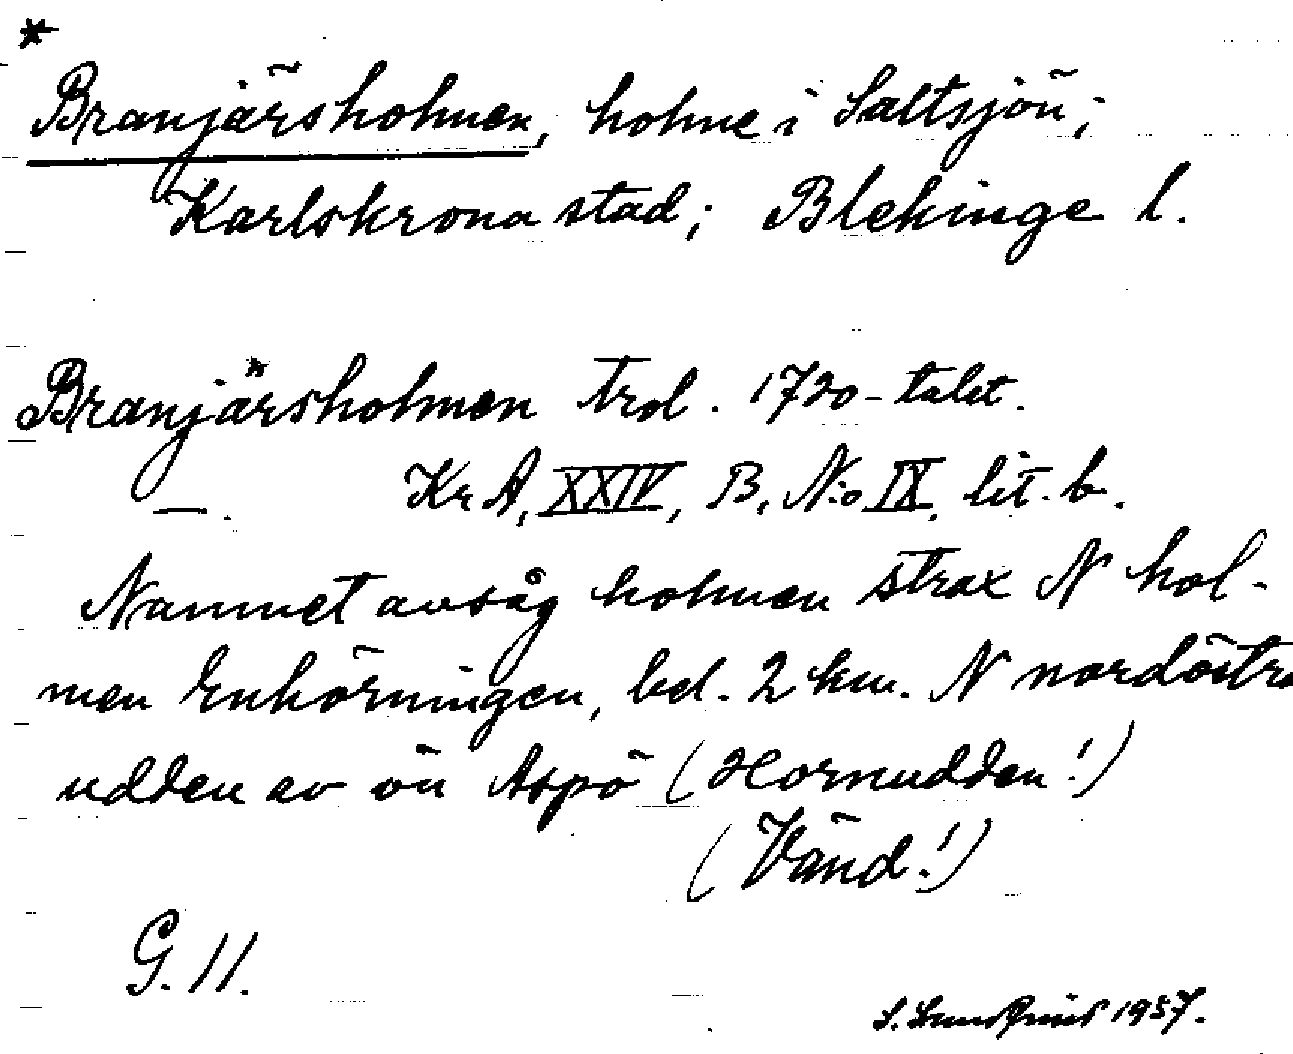 *
Branjärsholmen, holme i Saltsjön;
Karlskrona stad; Blekinge l.
Branjärsholmen trol. 1720-talet.
Kr A, XXIV, B, N:o IX, lit. b.
Namnet avsåg holmen strax N hol-
men Enhörningen, bel. 2 km. N nordöstra
udden av ön Aspö (Hornudden!)
(Vänd!)
G. 11.
S. 1957.